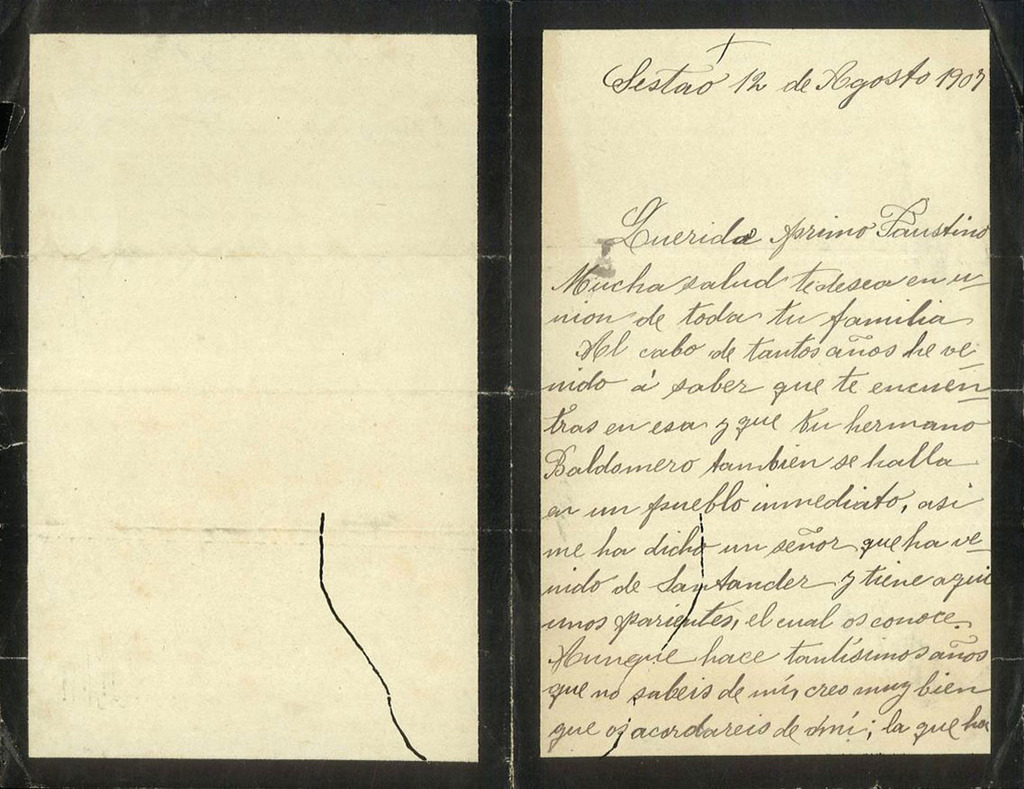 +
Sestao 12 de Agosto 1907
Querido primo Faustino
Mucha salud te deseo en u-
nion de toda tu familia
Al cabo de tantos años he ve-
nido á saber que te encuen-
tras en esa y que tu hermano
Baldomero tambien se halla
en un pueblo inmediato, asi
me ha dicho un señor que ha ve-
nido de Santander y tiene aqui
unos parientes, el cual os conoce.
Aunque hace tantísimos años
que no sabeis de mí, creo muy bien
que os acordareis de mí; la que ha